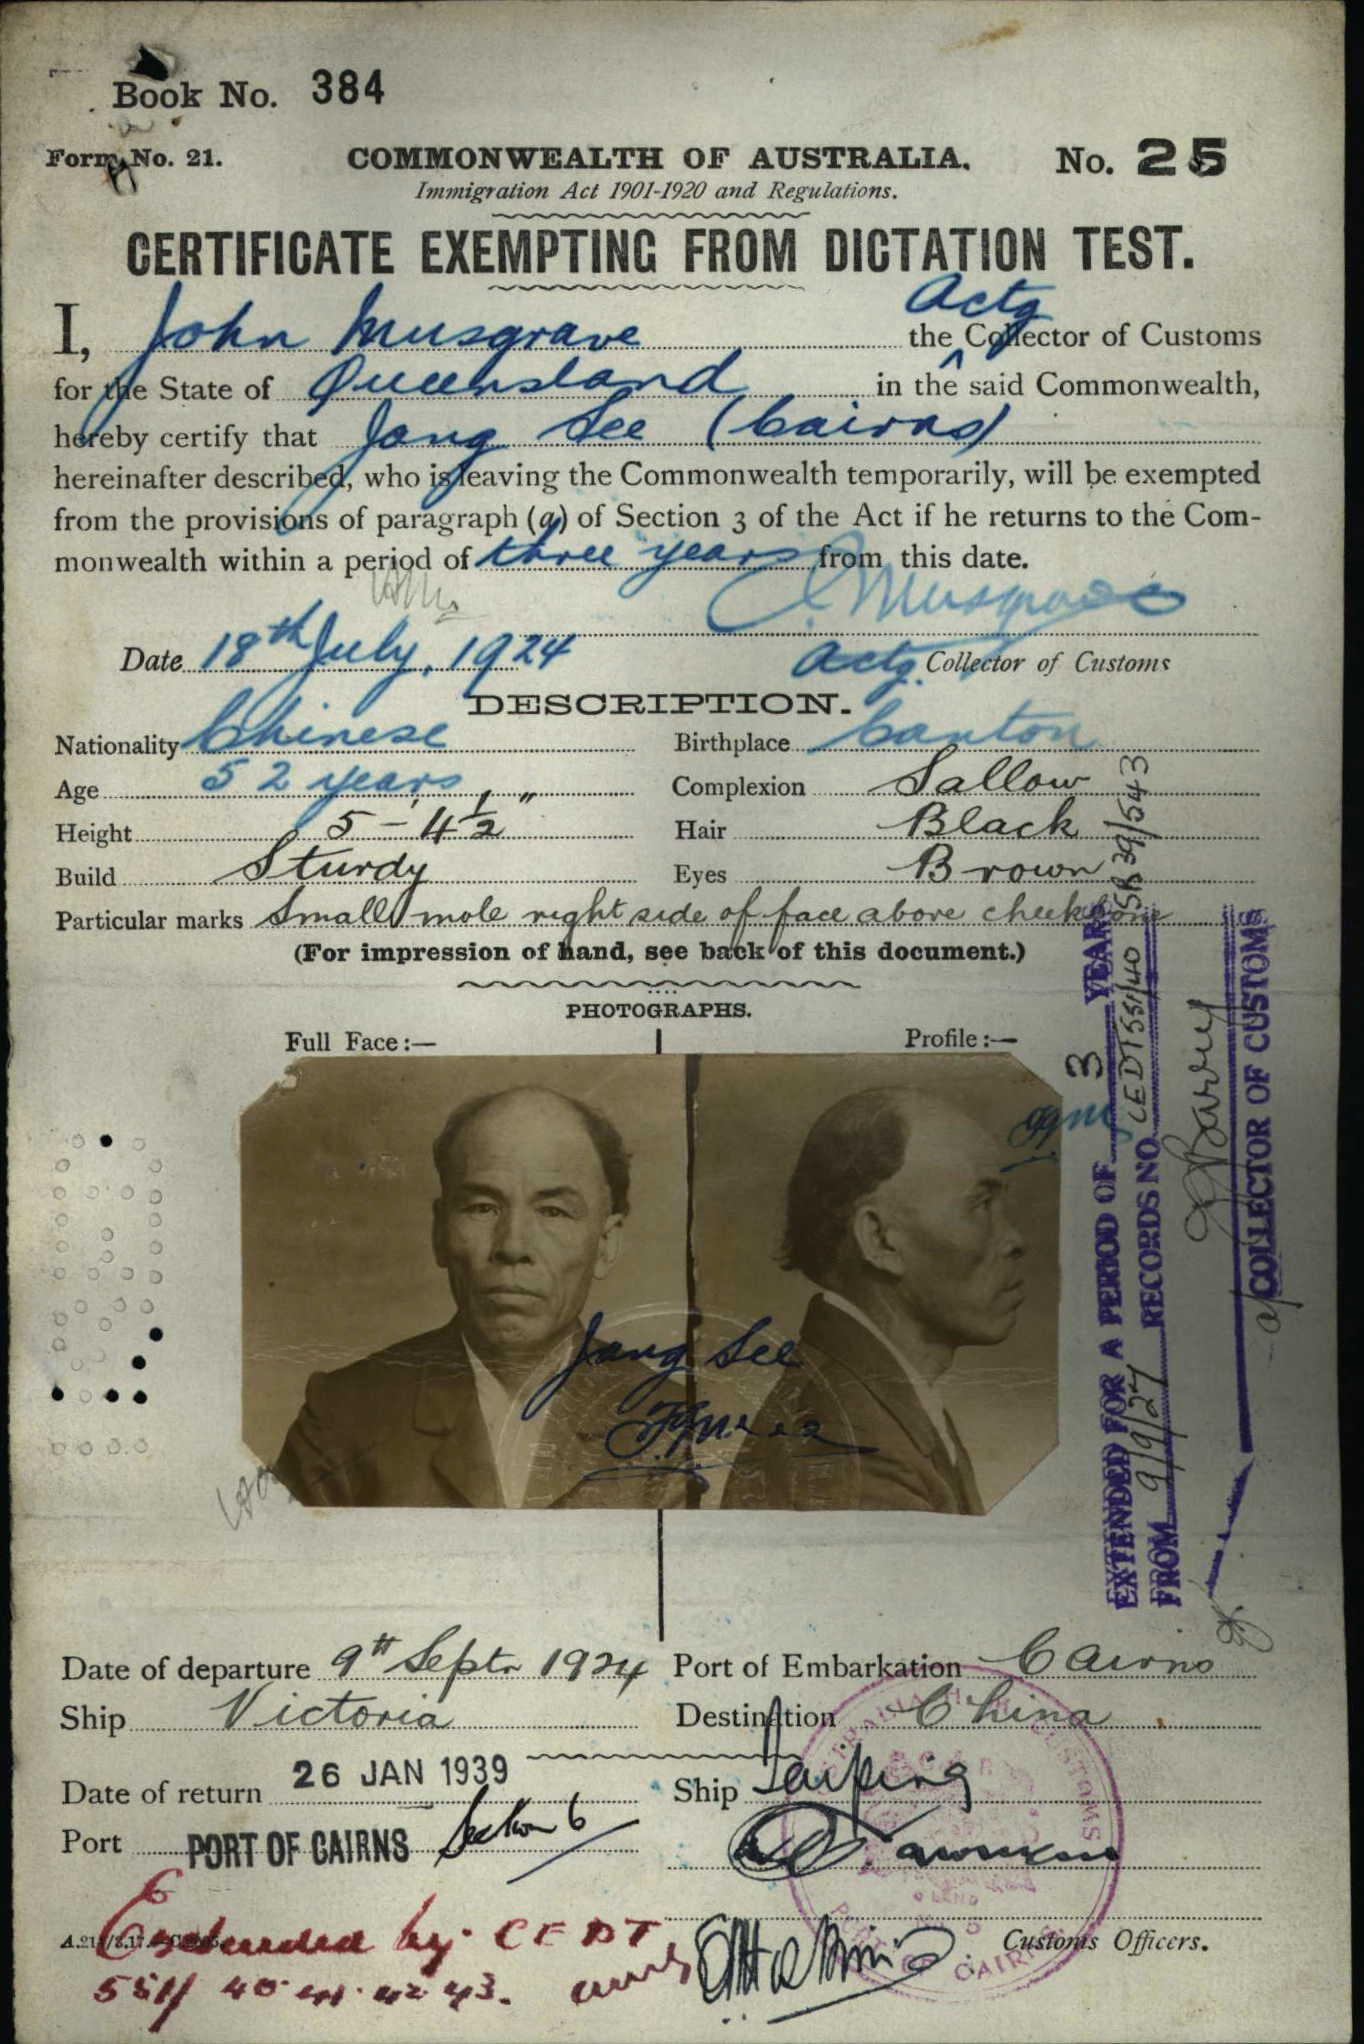 Book No. 384
Form No. 21.
COMMONWEALTH OF AUSTRALIA.
No. 25
Immigration Act 1901-1920 and Regulations.
CERTIFICATE EXEMPTING FROM DICTATION TEST.
Actg
I, John Musgrave the Collector of Customs
for the State of Queensland in the said Commonwealth,
hereby certify that Jang See (Cairns)
hereinafter described, who is leaving the Commonwealth temporarily, will be exempted
from the provisions of paragraph (a) of Section 3 of the Act if he returns to the Com-
monwealth within a period of three years from this date.
J. Musgrave
Date 18th July, 1924 Actg. Collector of Customs
DESCRIPTION.
Nationality Chinese Birthplace Canton
Age 52 years Complexion Sallow
Height 5'-4½" Hair Black
Build Sturdy Eyes Brown
Particular marks Small mole right side of face above cheekbone
(For impression of hand, see back of this document.)
PHOTOGRAPHS.
Full Face:— Profile:—
Jang See
EXTENDED FOR A PERIOD OF 3 YEARS
FROM 9/9/27 RECORDS NO. CEDT 551/40
39/543
COLLECTOR OF CUSTOMS
Date of departure 9th Septr 1924 Port of Embarkation Cairns
Ship Victoria Destination China
Date of return 26 JAN 1939 Ship Taiping
Port PORT OF CAIRNS Section 6
Customs Officers.
Extended by CEDT
551/ 40 41. 42 43.
CUSTOMS
CAIRNS